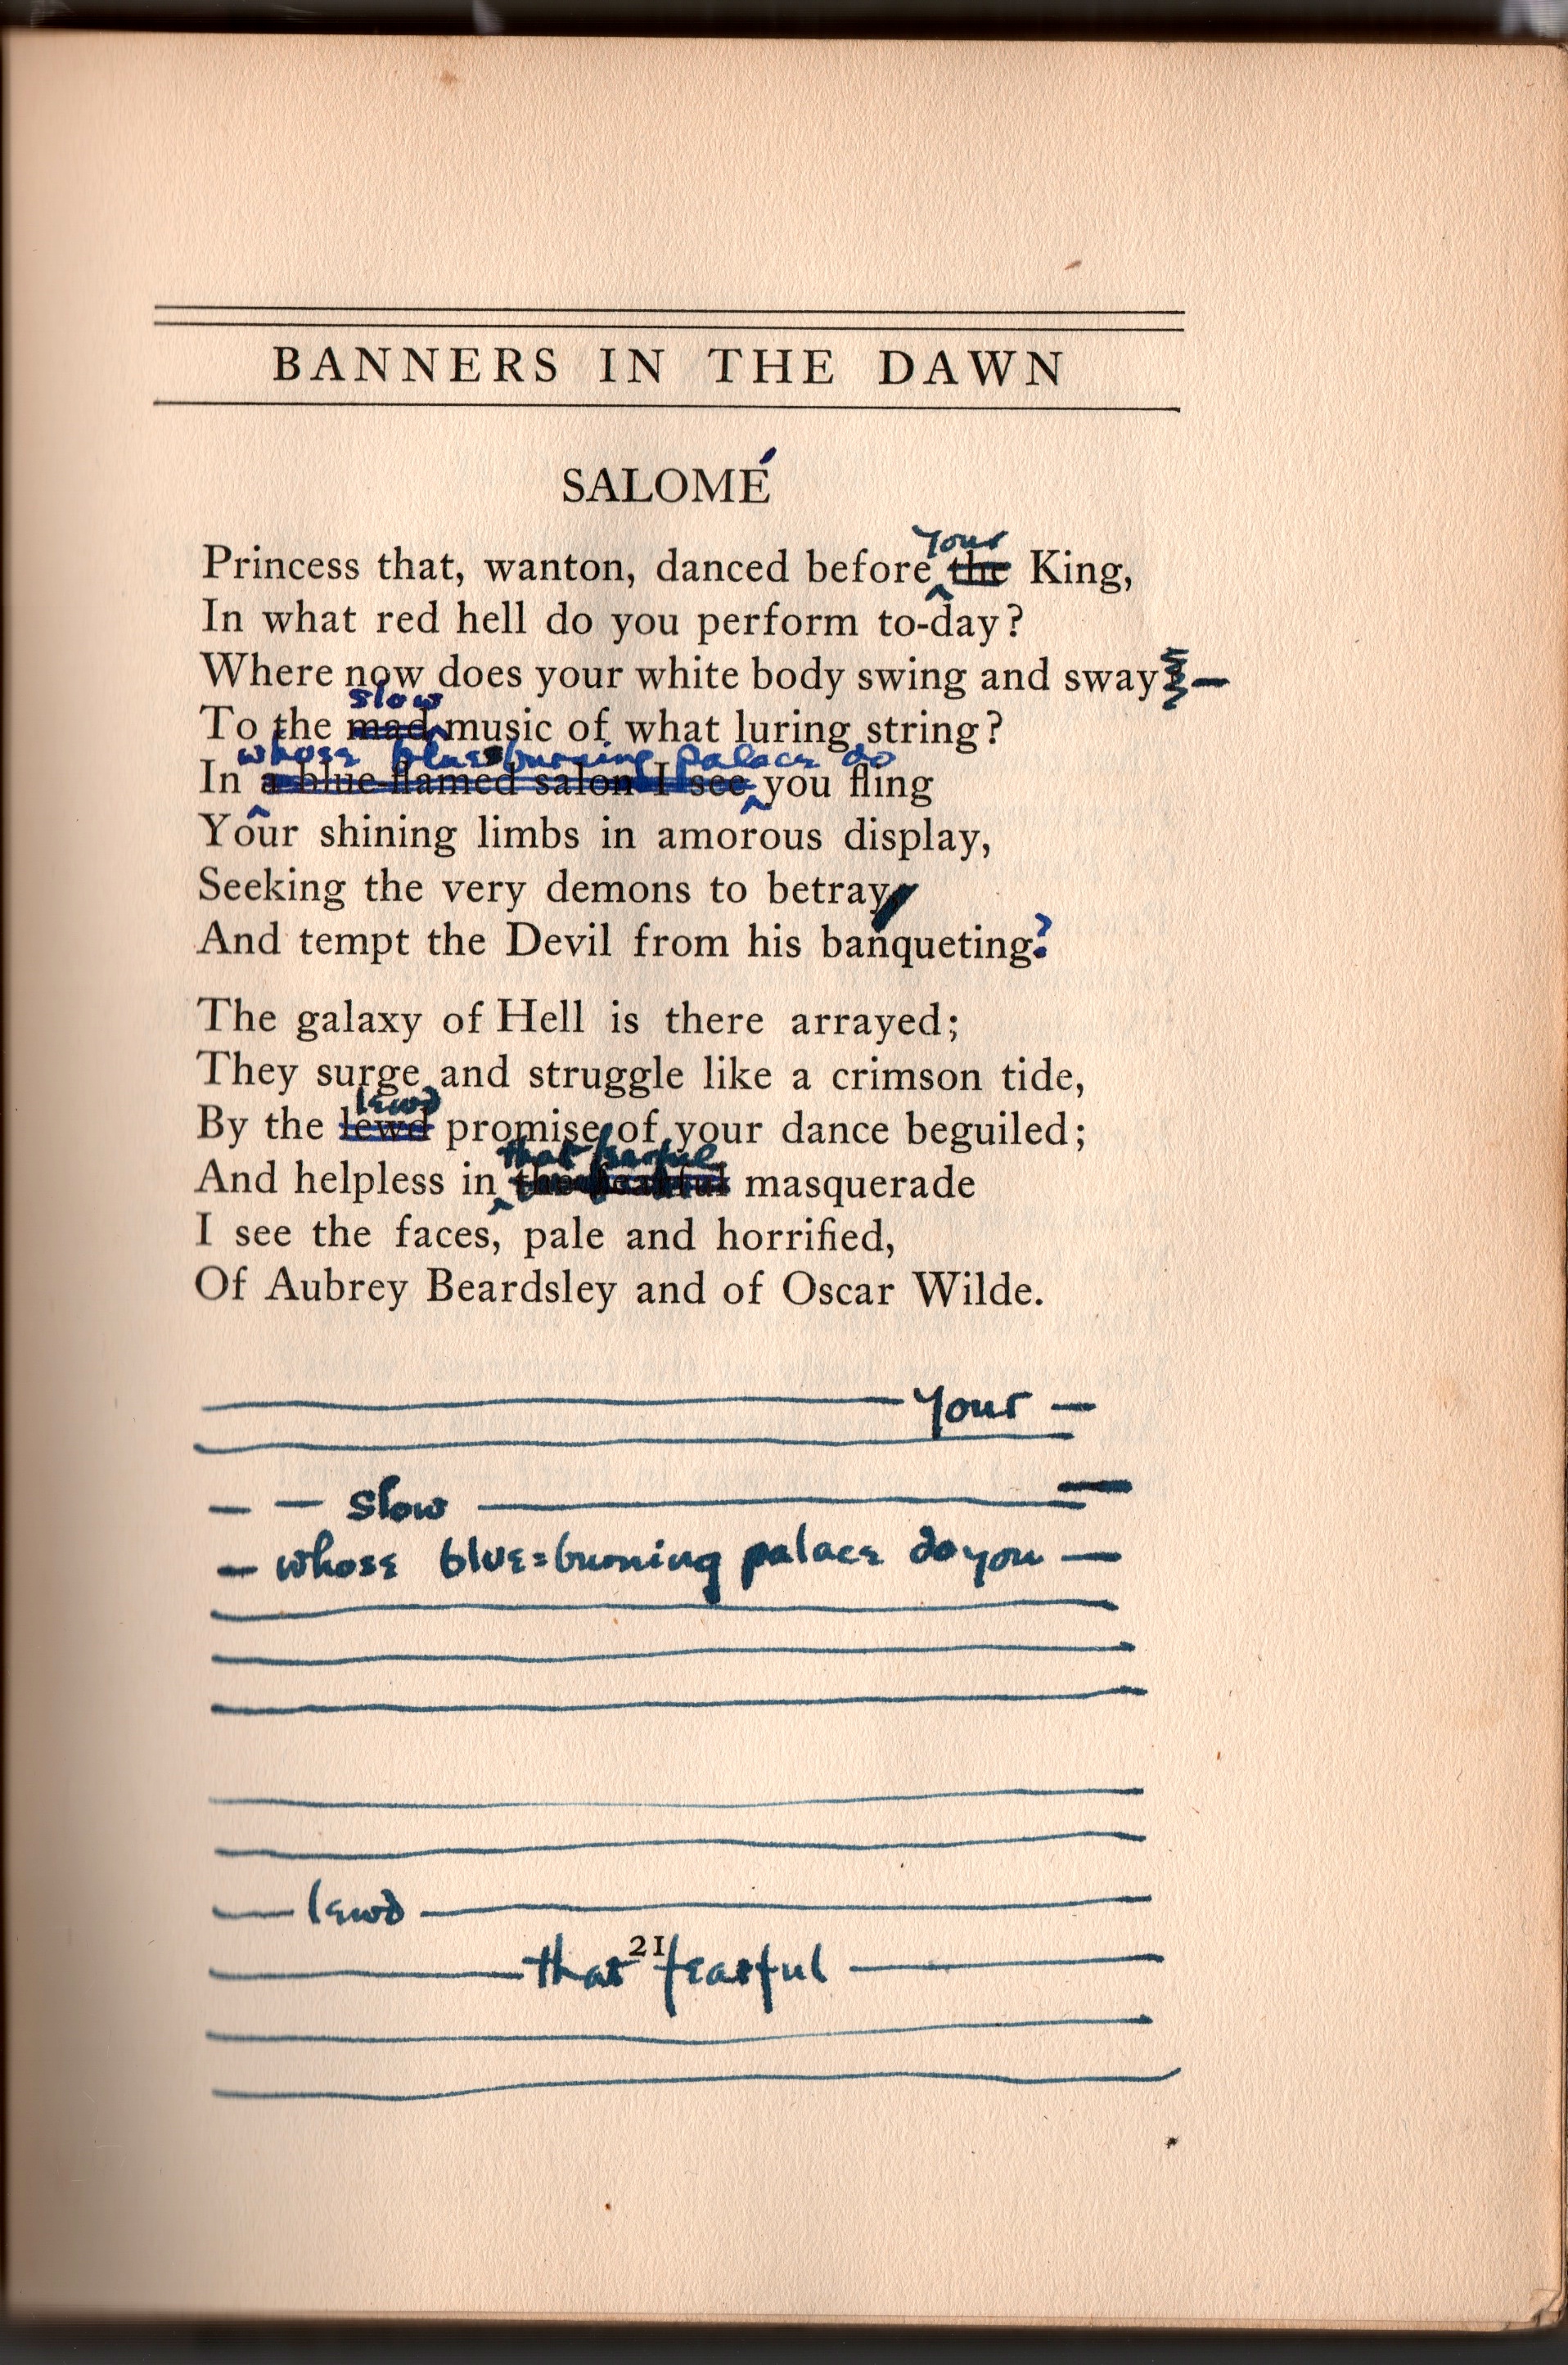 BANNERS IN THE DAWN
SALOMÉ
your
Princess that, wanton, danced before the King,
In what red hell do you perform to-day?
Where now does your white body swing and sway—
slow
To the mad music of what luring string?
whose blue=burning palace do
In a blue-flamed salon I see you fling
Your shining limbs in amorous display,
Seeking the very demons to betray
And tempt the Devil from his banqueting?
The galaxy of Hell is there arrayed;
They surge and struggle like a crimson tide,
lewd
By the lewd promise of your dance beguiled;
that fearful
And helpless in masquerade
I see the faces, pale and horrified,
Of Aubrey Beardsley and of Oscar Wilde.
your —
— — slow —
— whose blue=burning palace do you —
— lewd —
21
— that fearful —